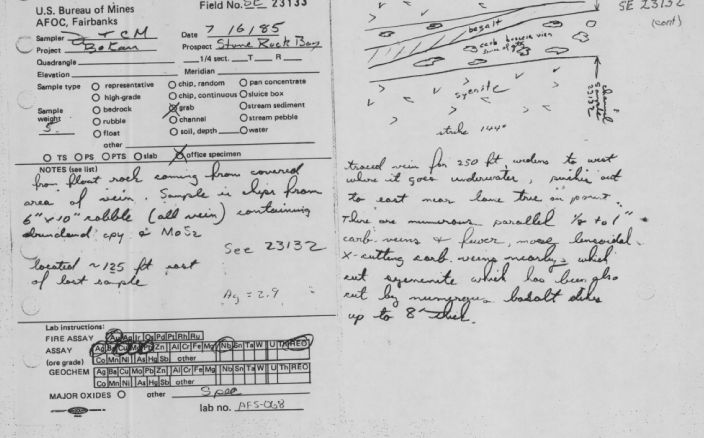 U.S. Bureau of Mines
AFOC, Fairbanks
Field No. SE 23133
Sampler + CM
Date 7/16/85
Project Bokan
Prospect Stone Rock Bay
Quadrangle
1/4 sect. T R
Elevation
Meridian
Sample type
representative
high-grade
bedrock
rubble
float
chip, random
chip, continuous
grab
channel
soil, depth
pan concentrate
sluice box
stream sediment
stream pebble
water
Sample weight 5
other
TS PS PTS slab office specimen
NOTES (see list)
from float rock coming from covered
area of vein. Sample is chips from
6" x 10" rubble (all vein) containing
abundant cpy & MoS2
See 23132
located ~125 ft east
of last sample
Ag = 2.9
Lab instructions:
FIRE ASSAY Au Ag Ir Os Pd Pt Rh Ru
ASSAY Ag Ba Cu Mo Pb Zn Al Cr Fe Mg Nb Sn Ta W U Th REO
(ore grade) Co Mn Ni As Hg Sb other
GEOCHEM Ag Ba Cu Mo Pb Zn Al Cr Fe Mg Nb Sn Ta W U Th REO
Co Mn Ni As Hg Sb other
MAJOR OXIDES other Spec
lab no. AFS-068
SE 23132
(cont)
basalt
carb breccia vein
syenite
channel
sample
23132
strike 144°
traced vein for 250 ft, widens to west
where it goes underwater, pinches out
to east near lone tree on point.
There are numerous parallel 1/2 to 1"
carb. veins & fewer, more lensoidal
x-cutting carb. veins nearby, which
cut syenite which has been also
cut by numerous basalt dikes
up to 8" thick.